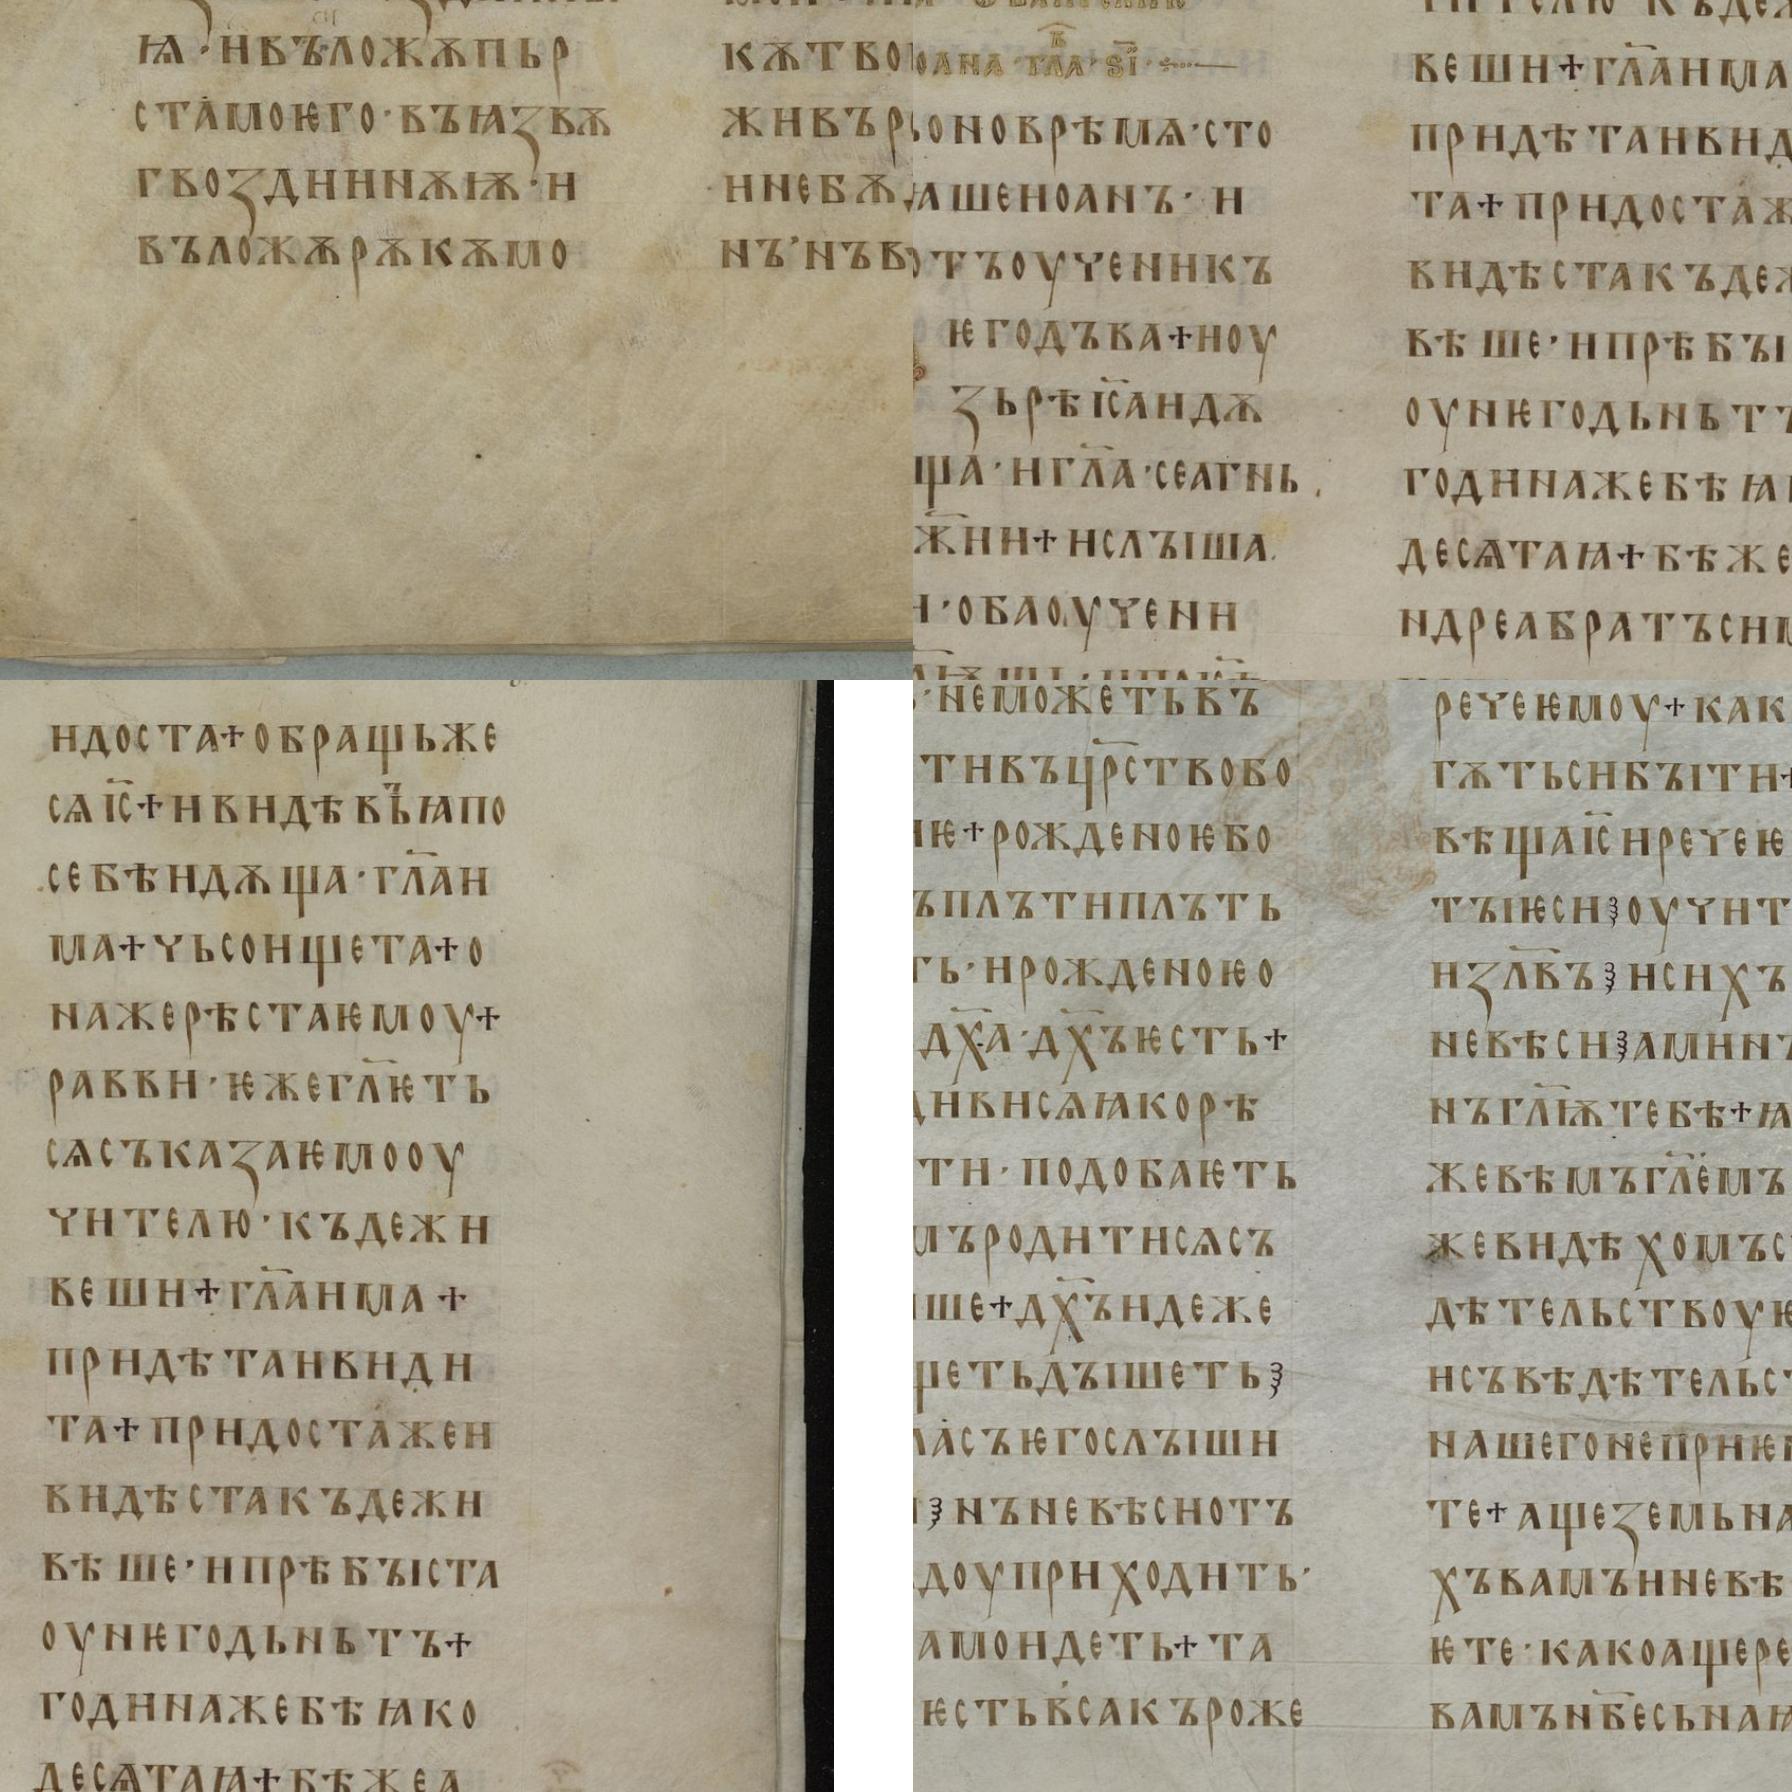 ꙗ·и въложѫ пьр
ста моѥго·въ ꙗзвѫ
гвоздииинѫѭ·и
въложѫ рѫкѫ мо
кѫ тво
жи въ р
и не бѫ
нъ’нъ в
оана· гла҃· ѕ҃і·
оно врѣмѧ·сто
ше иоанъ· и
отъ оученикъ
ѥго дъва+и оу
зьрѣ іс҃а идѫ
ща·и гл҃а·се агнь
жии+и слыша
и·оба оучени
вешии+гл҃а има
придѣта и вид
та+придоста ж
видѣста къде ж
вѣше·и прѣбы
оу ниѥго дьнь т
година же бѣ ꙗ
десѧтаꙗ+бѣ же
ндреа братъ сим
идоста+обращь же
сѧ іс҃+и видѣ в꙼ꙗ по
себѣ идѫща·гл҃а и
ма+чьсо ищета+о
на же рѣста ѥмоу+
равви·ѥже гл҃ѥть
сѧ съказаѥмо оу
чителю·къде жи
веши+гл҃а има+
придѣта и види
та+придоста же и
видѣста къде жи
вѣше·и прѣбыста
оу ниѥго дьнь тъ+
година же бѣ ꙗко
десѧтаꙗ+бѣ же а
·не можеть въ
ти въ цр҃ство бо
иѥ+рожденоѥ бо
ъ плъти плъть
ть·и рожденоѥ о
дх҃а·дх҃ъ ѥсть+
диви сѧ ꙗко рѣ
ти·подобаѥть
мъ родити сѧ съ
ше+дх҃ъ идеже
щеть дышеть
гласъ ѥго слыши
нъ не вѣси отъ
доу приходить·
амо идеть+та
ѥсть вьсакъ роже
рече ѥмоу+как
гѫть си быти+
вѣща іс҃ и рече ѥ
ты ѥси оучит
изл҃въ и сихъ
не вѣси аминъ
нъ гл҃ѭ тебѣ+ꙗ
же вѣмъ гл҃емъ
же видѣхомъ с
дѣтельствоуѥ
и съвѣдѣтельс
нашего не приѥм
те+аще земьна
хъ вамъ и не вѣ
ѥте·како аще ре
вамъ н҃бесьнаꙗ